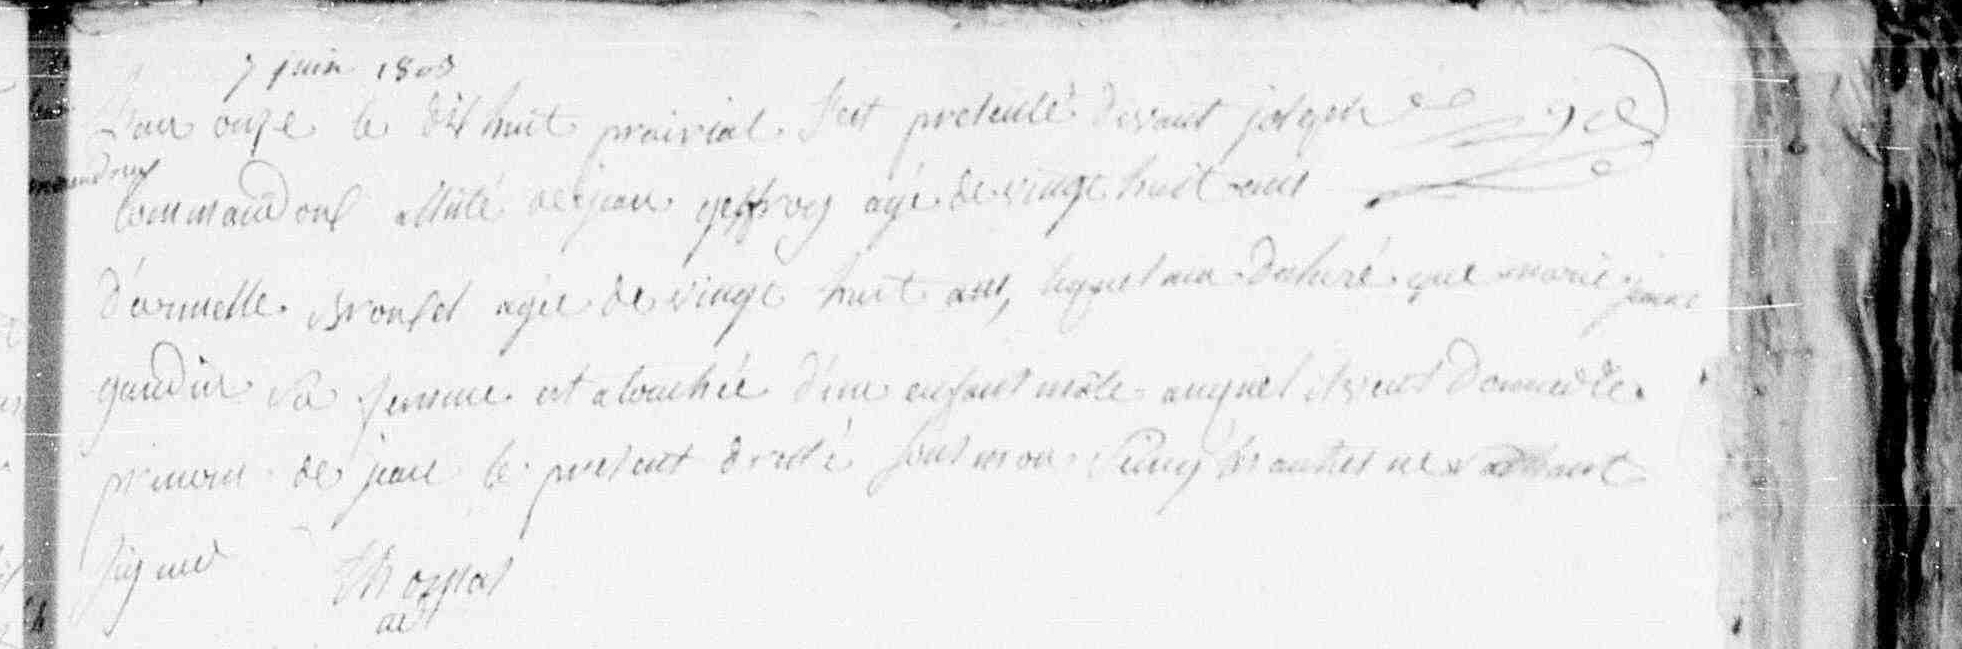 7 juin 1803
L'an onze le dix huit prairial s'est présenté devant joseph
Commandoux assisté de jean geffroy agé de vingt huit ans
d'armelle agée de vingt huit ans, lequel a declaré que marie jeanne
gandin sa femme est accouchée d'un enfant mâle auquel ils ont donné le
prenom de jean le present dressé sous mon Seing les autres ne sachant
signer